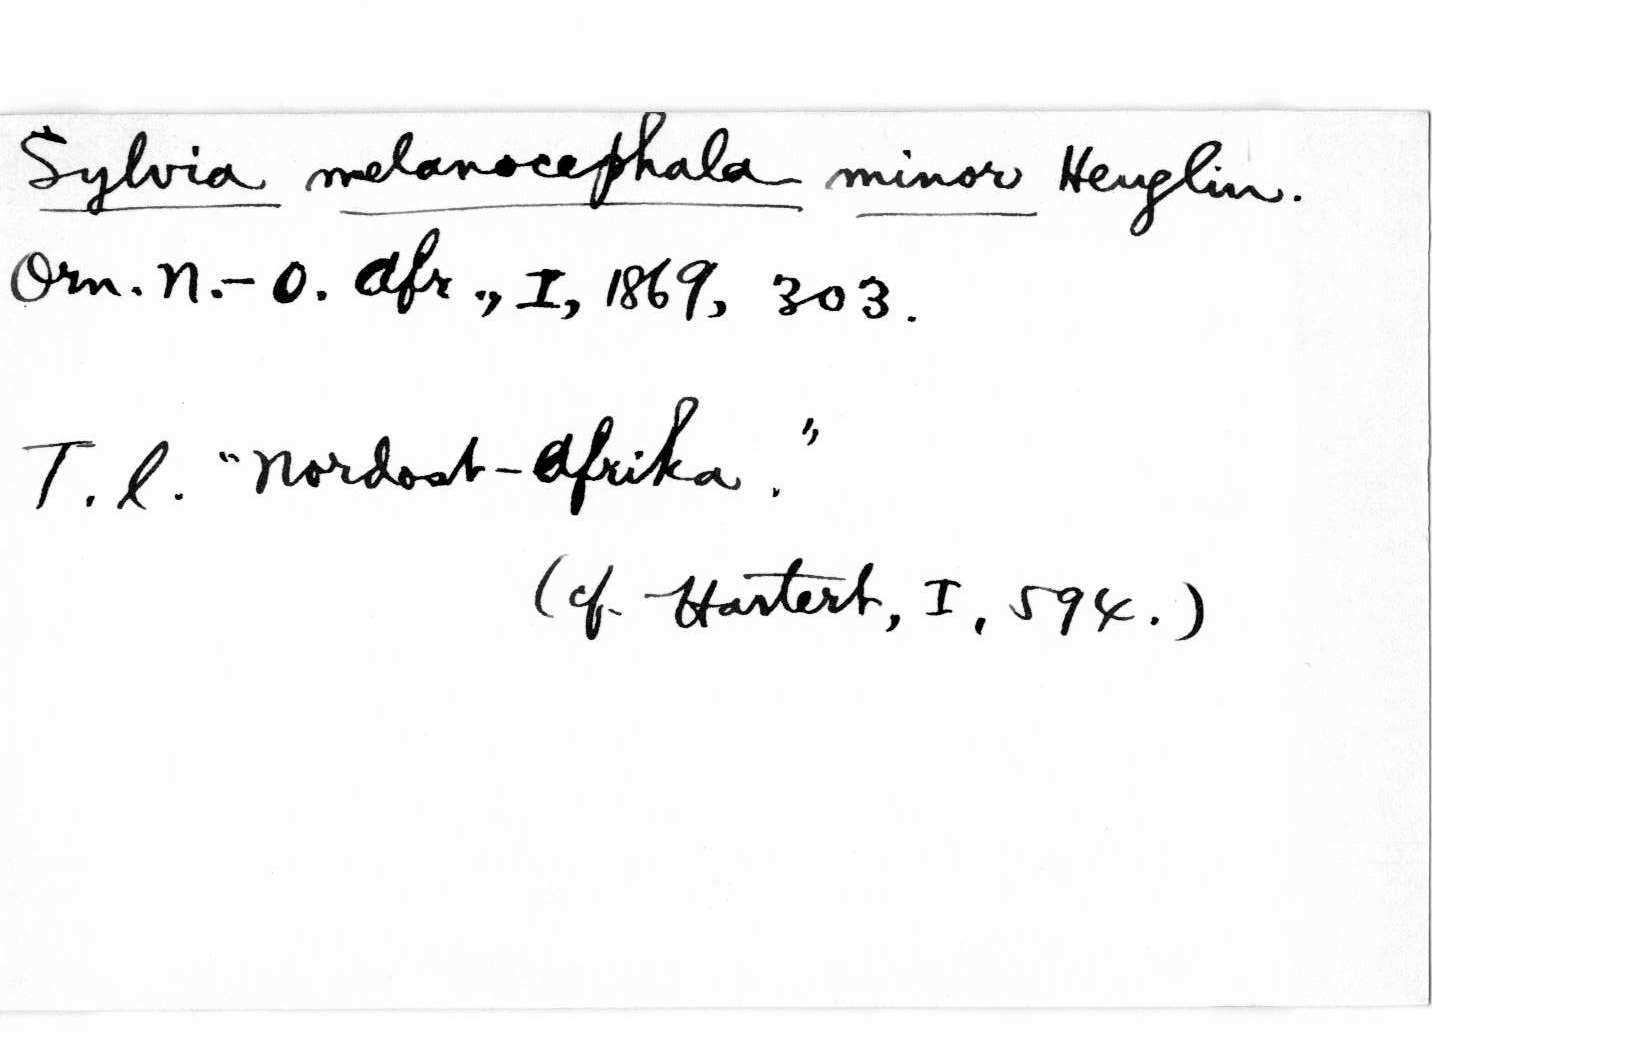 Sylvia melanocephala minor Heuglin.
Orn. N.-O. Afr., I, 1869, 303.
T. l. "Nordost-Afrika."
(cf. Hartert, I, 594.)